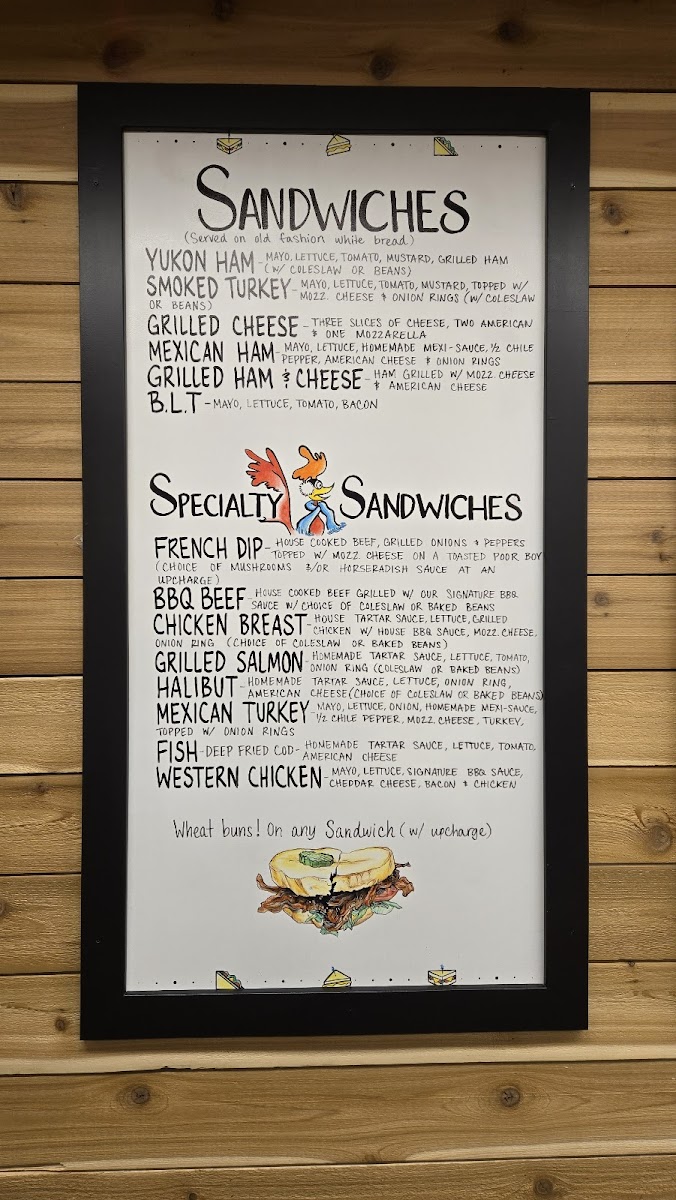 SANDWICHES
(Served on old fashion white bread)
YUKON HAM - MAYO, LETTUCE, TOMATO, MUSTARD, GRILLED HAM
(W/ COLESLAW OR BEANS)
SMOKED TURKEY - MAYO, LETTUCE, TOMATO, MUSTARD, TOPPED W/
MOZZ. CHEESE & ONION RINGS (W/ COLESLAW
OR BEANS)
GRILLED CHEESE - THREE SLICES OF CHEESE, TWO AMERICAN
& ONE MOZZARELLA
MEXICAN HAM - MAYO, LETTUCE, HOMEMADE MEXI-SAUCE, ½ CHILE
PEPPER, AMERICAN CHEESE & ONION RINGS
GRILLED HAM & CHEESE - HAM GRILLED W/ MOZZ. CHEESE
& AMERICAN CHEESE
B.L.T - MAYO, LETTUCE, TOMATO, BACON
SPECIALTY SANDWICHES
FRENCH DIP - HOUSE COOKED BEEF, GRILLED ONIONS & PEPPERS
TOPPED W/ MOZZ. CHEESE ON A TOASTED POOR BOY
(CHOICE OF MUSHROOMS &/OR HORSERADISH SAUCE AT AN
UPCHARGE)
BBQ BEEF - HOUSE COOKED BEEF GRILLED W/ OUR SIGNATURE BBQ
SAUCE W/ CHOICE OF COLESLAW OR BAKED BEANS
CHICKEN BREAST - HOUSE TARTAR SAUCE, LETTUCE, GRILLED
CHICKEN W/ HOUSE BBQ SAUCE, MOZZ. CHEESE,
ONION RING (CHOICE OF COLESLAW OR BAKED BEANS)
GRILLED SALMON - HOMEMADE TARTAR SAUCE, LETTUCE, TOMATO,
ONION RING (COLESLAW OR BAKED BEANS)
HALIBUT - HOMEMADE TARTAR SAUCE, LETTUCE, ONION RING,
AMERICAN CHEESE (CHOICE OF COLESLAW OR BAKED BEANS)
MEXICAN TURKEY - MAYO, LETTUCE, ONION, HOMEMADE MEXI-SAUCE,
½ CHILE PEPPER, MOZZ. CHEESE, TURKEY,
TOPPED W/ ONION RINGS
FISH - DEEP FRIED COD - HOMEMADE TARTAR SAUCE, LETTUCE, TOMATO,
AMERICAN CHEESE
WESTERN CHICKEN - MAYO, LETTUCE, SIGNATURE BBQ SAUCE,
CHEDDAR CHEESE, BACON & CHICKEN
Wheat buns! On any Sandwich (w/ upcharge)